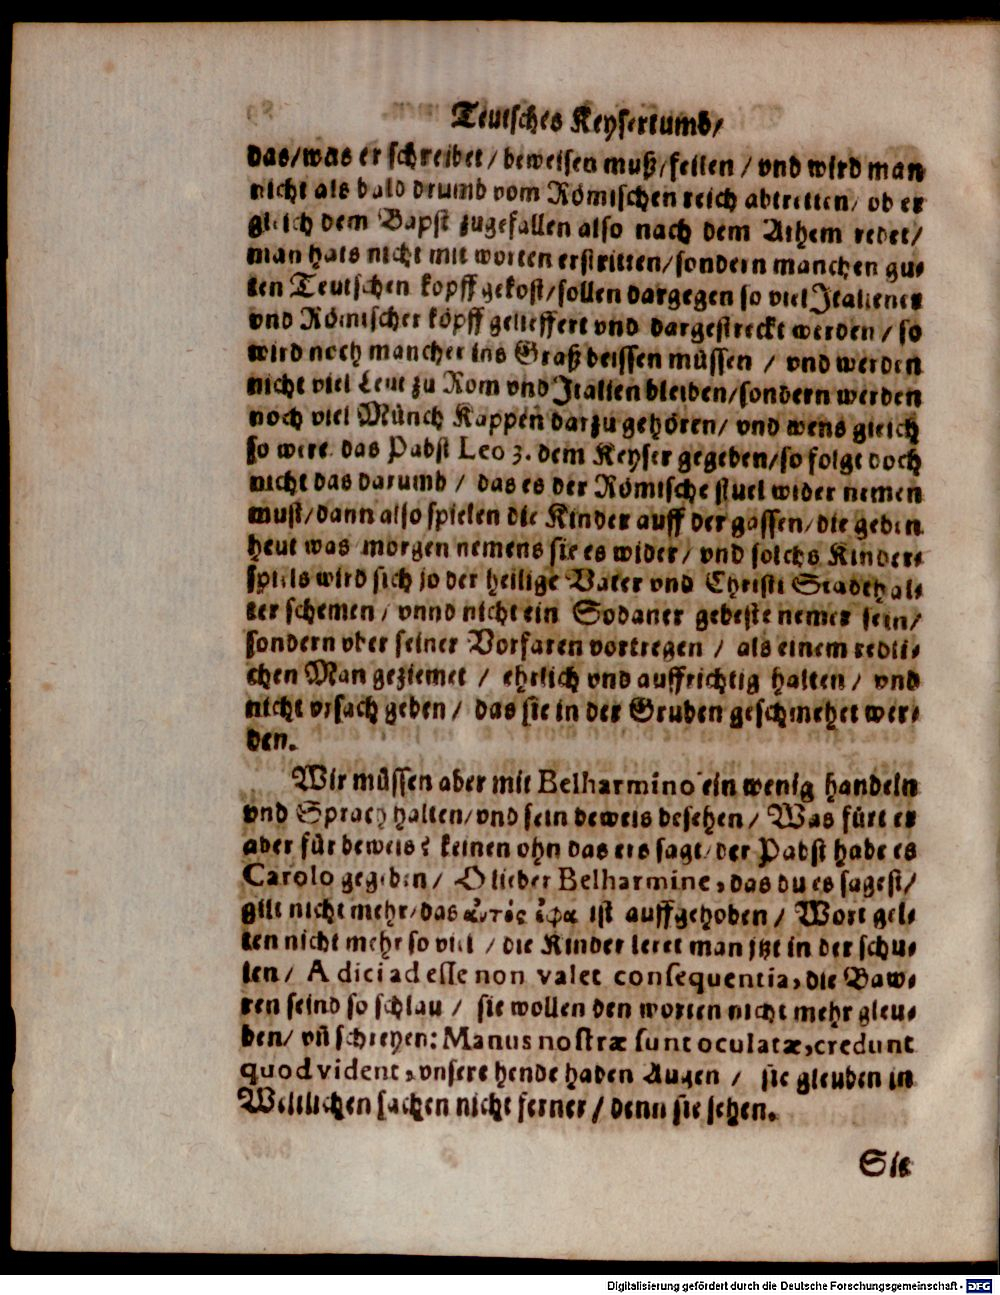 Teutsches Keysertumb/
das/was er schreibet/ beweisen muß/feilen / vnd wird man
nicht als bald drumb vom Römischen reich abtretten/ ob er
gleich dem Bapst zugefallen also nach dem Athem redet/
man hats nicht mit worten erstritten/sondern manchen gu-
ten Teutschen kopff gekost/sollen dargegen so viel Italiener
vnd Römischer köpff gelieffert vnd dargestreckt werden / so
wird noch mancher ins Graß beissen müssen / vnd werden
nicht viel Leut zu Rom vnd Italien bleiben/sondern werden
noch viel Münch Kappen darzu gehören/ vnd wens gleich
so were das Pabst Leo 3. dem Keyser gegeben/so folgt doch
nicht das darumb / das es der Römische stuel wider nemen
must/dann also spielen die Kinder auff der gassen/die geben
heut was morgen nemens sie es wider/ vnd solchs Kinder-
spiels wird sich jo der heilige Vater vnd Christi Stadthal-
ter schemen/ vnnd nicht ein Sodaner gebeste nemer sein/
sondern vber seiner Vorfaren vortregen / als einem redli-
chen Man geziemet / ehrlich vnd auffrichtig halten / vnd
nicht vrsach geben / das sie in der Gruben geschmehet wer-
den.
Wir müssen aber mit Belharmino ein wenig handeln
vnd Sprach halten/vnd sein beweis besehen / Was fürt er
aber für beweis? keinen ohn das ers sagt/der Pabst habe es
Carolo gegeben / O lieber Belharmine, das du es sagest/
gilt nicht mehr/das ἀυτὸς ἔφα ist auffgehoben / Wort gel-
ten nicht mehr so viel / die Kinder leret man jtzt in der schu-
len / A dici ad esse non valet consequentia, die Baw-
ren seind so schlau / sie wollen den worten nicht mehr gleu-
ben/ vñ schreyen: Manus nostræ sunt oculatæ, credunt
quod vident, vnsere hende haben Augen / sie gleuben in
Weltlichen sachen nicht ferner / denn sie sehen.
Sie
Digitalisierung gefördert durch die Deutsche Forschungsgemeinschaft - DFG